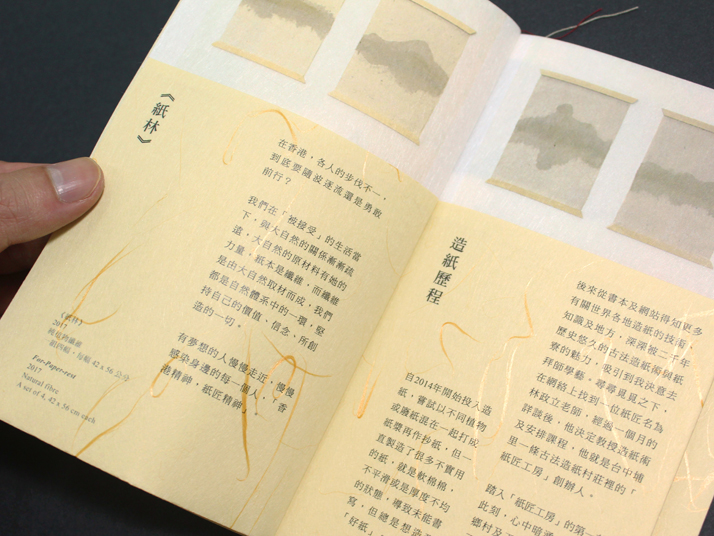 《紙林》
在香港，各人的步伐不一，
到底要隨波逐流還是勇敢
前行？
我們在「被接受」的生活當
下，與大自然的關係漸漸疏
遠，大自然的原材料有她的
力量，紙本是纖維，而纖維
是由大自然取材而成，我們
都是自然體系中的一環，堅
持自己的價值、信念，所創
造的一切。
有夢想的人慢慢走近，慢慢
感染身邊的每一個人，香
港精神，紙匠精神。
《紙林》
2017
一組四幅，每幅 42 x 56 公分
For-Paper-rest
2017
Natural fibre
A set of 4, 42 x 56 cm each
造紙歷程
自2014年開始投入造
紙，嘗試以不同植物
或廢紙混在一起打成
紙漿再作抄紙，但一
直製造了很多不實用
的紙，就是軟棉棉，
不平滑或是厚度不均
的狀態，導致未能書
寫，但總是想造
「好紙」
後來從書本及網站得知更多
有關世界各地造紙的技術
知識及地方，深深被二千年
歷史悠久的古法造紙術與紙
寮的魅力，吸引到我決意去
拜師學藝，尋尋覓覓之下，
在網絡上找到一位紙匠名為
林政立老師，經過一個月的
評談後，他決定教授造紙術
及安排課程，他就是台中埔
里一條古法造紙村莊裡的「
紙匠工房」創辦人。
踏入「紙匠工房」的第一
此刻，心中暗
鄉村及